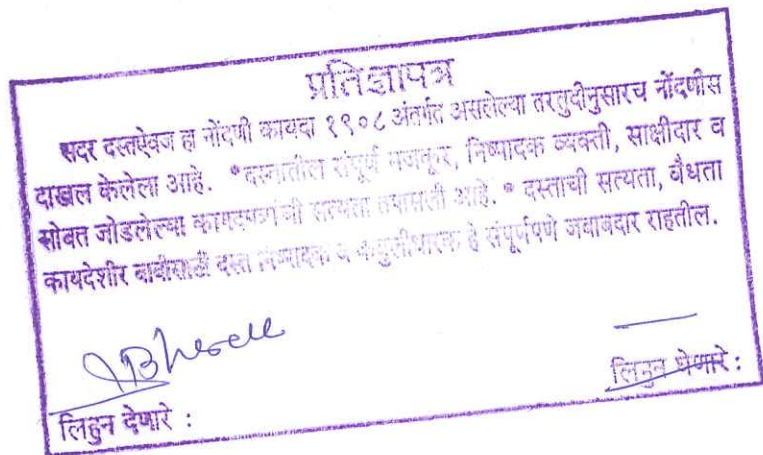 प्रतिज्ञापत्र
सदर दस्तऐवज हा नोंदणी कायदा १९०८ अंतर्गत असलेल्या तरतुदीनुसारच नोंदणीस
दाखल केलेला आहे. * दस्तातील संपूर्ण मजकूर, निष्पादक व्यक्ती, साक्षीदार व
सोबत जोडलेल्या कागदपत्रांची सत्यता तपासली आहे. * दस्ताची सत्यता, वैधता
कायदेशीर बाबींसाठी दस्त निष्पादक व कबुलीधारक हे संपूर्णपणे जबाबदार राहतील.
लिहुन देणारे :
लिहुन घेणारे :